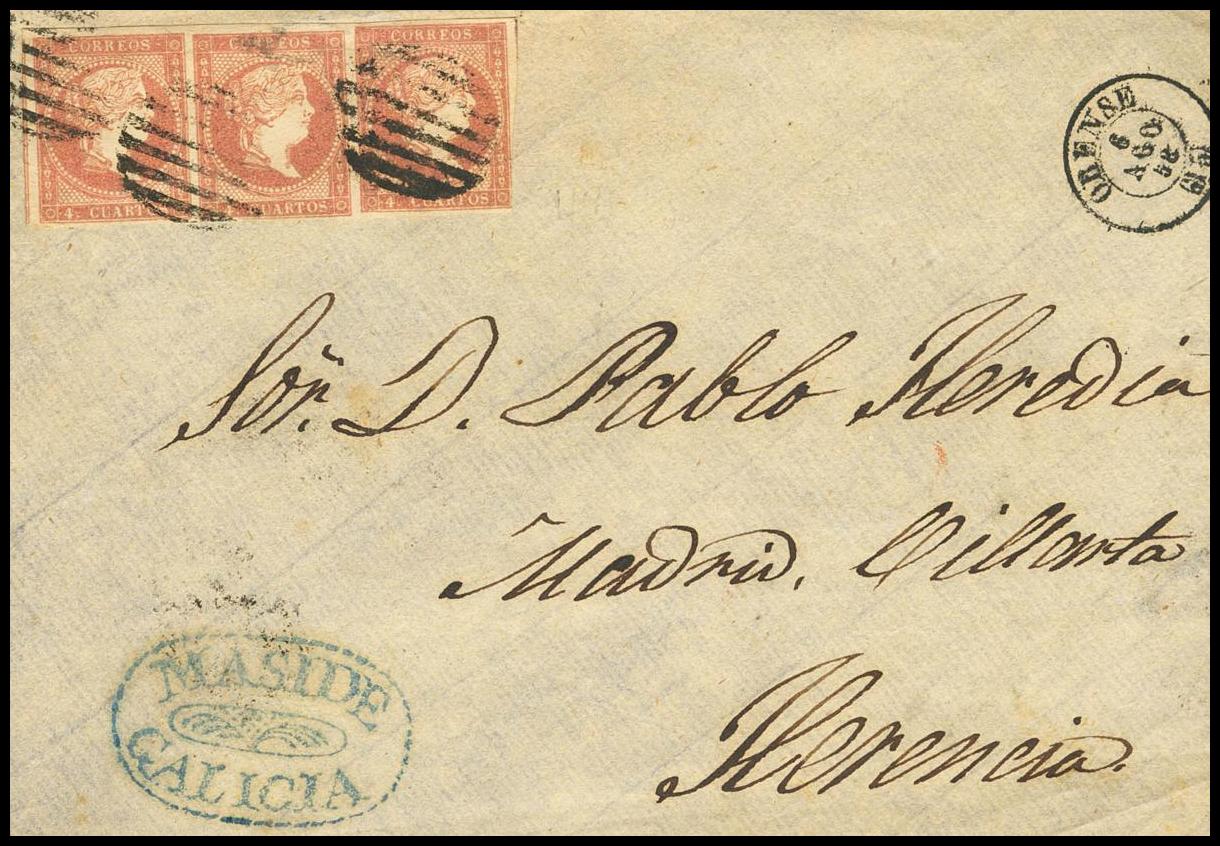 CORREOS CORREOS CORREOS
4 CUARTOS CUARTOS 4 CUARTOS
ORENSE
6
AGO
58
Sor. D. Pablo Heredia
Madrid, Villarta
Herencia.
MASIDE
GALICIA